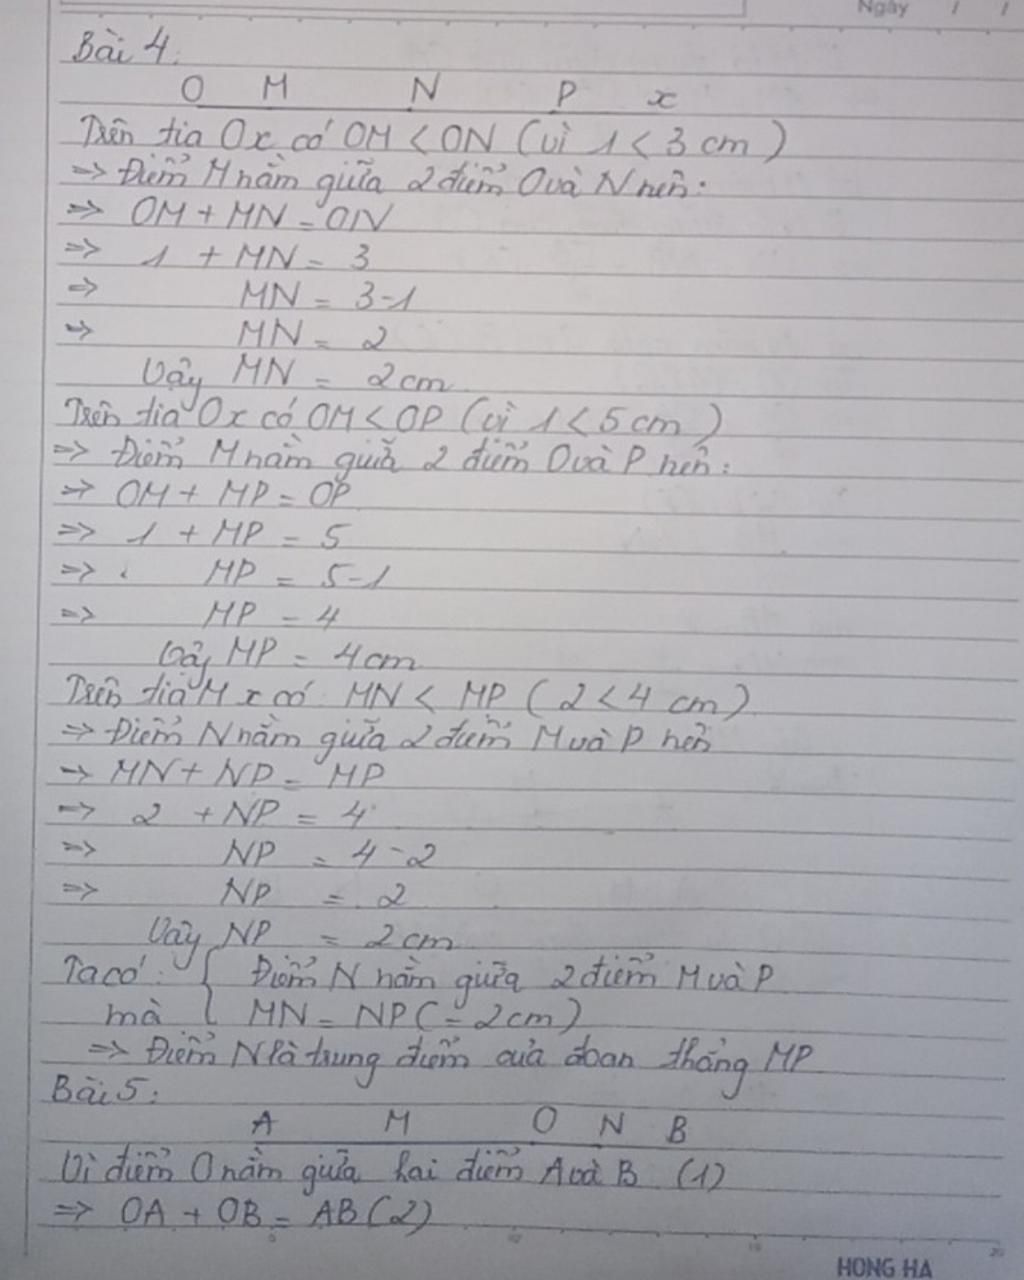 Ngày / /
Bài 4:
O M N P x
Trên tia Ox có OM < ON (vì 1 < 3 cm)
=> Điểm M nằm giữa 2 điểm O và N nên:
=> OM + MN = ON
=> 1 + MN = 3
=> MN = 3-1
=> MN = 2
Vậy MN = 2cm
Trên tia Ox có OM < OP (vì 1 < 5 cm)
=> Điểm M nằm giữa 2 điểm O và P nên:
=> OM + MP = OP
=> 1 + MP = 5
=> MP = 5-1
=> MP = 4
Vậy MP = 4cm
Trên tia Mx có MN < MP (2 < 4 cm)
=> Điểm N nằm giữa 2 điểm M và P nên
=> MN + NP = MP
=> 2 + NP = 4
=> NP = 4-2
=> NP = 2
Vậy NP = 2cm
Ta có: { Điểm N nằm giữa 2 điểm M và P
mà MN = NP (= 2cm)
=> Điểm N là trung điểm của đoạn thẳng MP
Bài 5:
A M O N B
Vì điểm O nằm giữa hai điểm A và B (1)
=> OA + OB = AB (2)
5 10 15 20
HONG HA